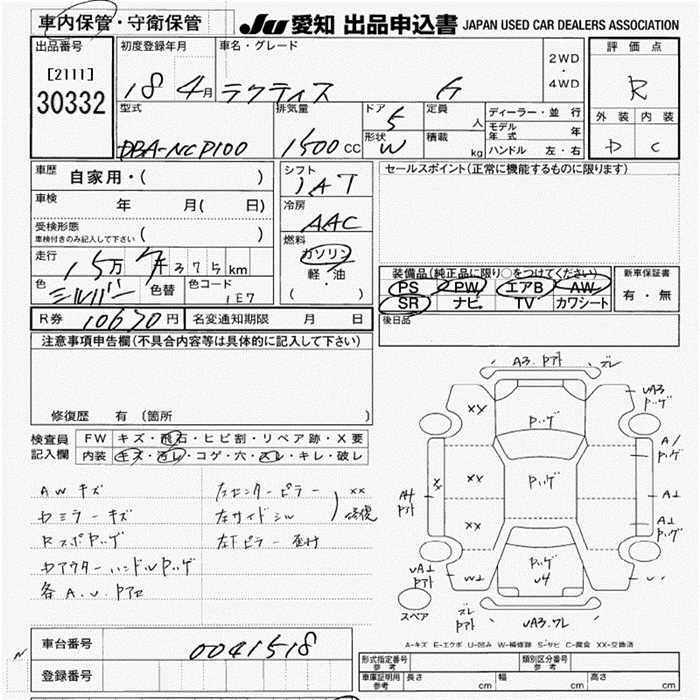 車内保管・守衛保管 JU 愛知 出品申込書 JAPAN USED CAR DEALERS ASSOCIATION
出品番号 初度登録年月 車名・グレード 2WD・4WD 評価点
[2111] 18 4月 ラクティス G R
30332 外装 内装
型式 排気量 ドア 5 定員 人 ディーラー・並行
モデル年式 年
DBA-NCP100 1500 CC 形状 W 積載 kg ハンドル 左・右 D C
車歴 自家用・( ) シフト IAT セールスポイント(正常に機能するものに限ります)
車検 年 月( 日) 冷房 AAC
受検形態
車検付きのみ記入して下さい ( ) 燃料
ガソリン
軽・油
( )
走行 15万7千375km 装備品(純正品に限り○をつけてください) 新車保証書
色 シルバー 色替 色コード 1E7 PS PW エアB AW 有・無
SR ナビ TV カワシート
R券 10630円 名変通知期限 月 日 後日品
注意事項申告欄(不具合内容等は具体的に記入して下さい)
修復歴 有 (箇所 )
検査員 FW キズ・飛石・ヒビ割・リペア跡・X要
記入欄 内装 キズ・汚レ・コゲ・穴・スレ・キレ・破レ
AWキズ 左センターピラー XX
ドミラーキズ 左サイドシル 修復
RスポPハゲ
各A.U.Pアセ
A3.Pアト ズレ
UA3
Pハゲ
XX
Pハゲ
A1
Pハゲ
XX
Pハゲ
A1
XX
A1
Pハゲ
UA1
Pアト
W2
Pハゲ
U4
スペア
ズレ
Pアト
UA3.ワレ
A-キズ E-エクボ U-凹み W-補修跡 S-サビ C-腐食 XX-交換済
車台番号 0041518
登録番号
形式指定番号
参考 類別区分番号
参考
車庫証明用
参考 長さ cm 幅 cm 高さ cm